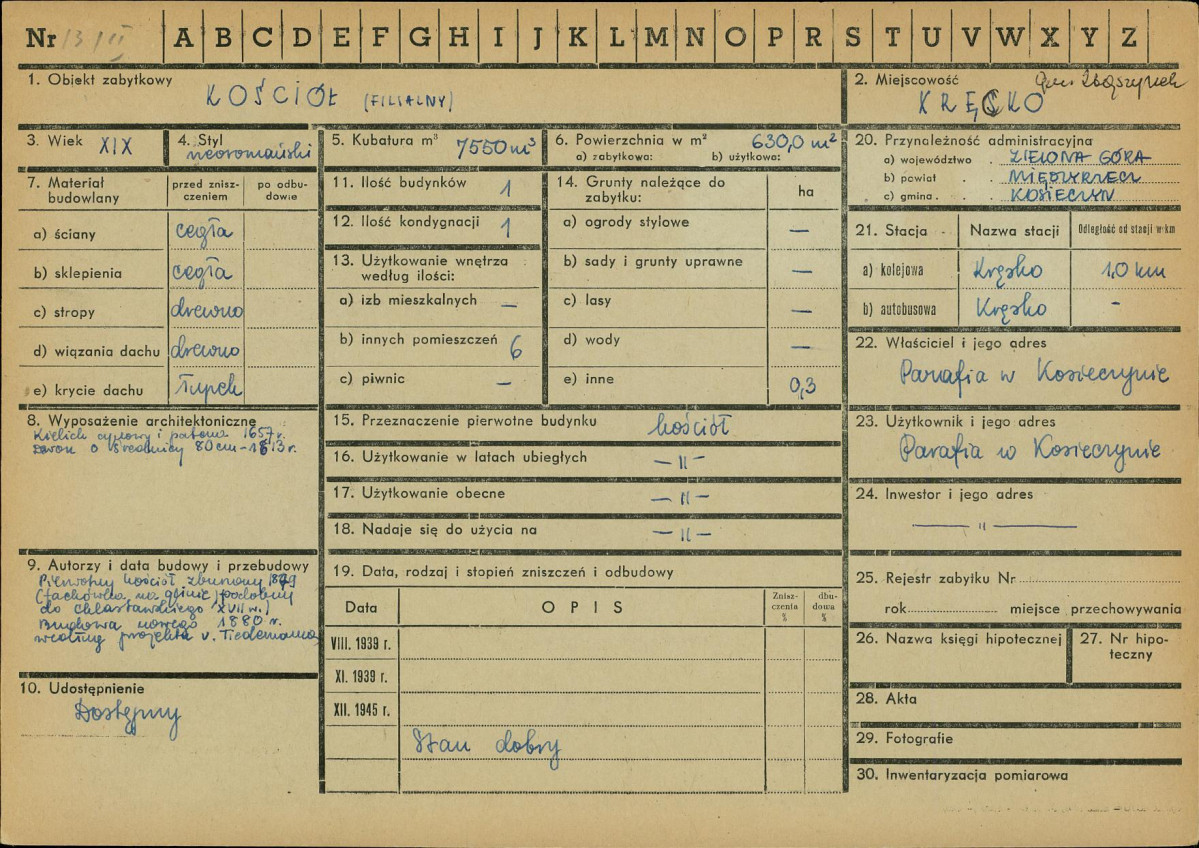 Nr 13/II A B C D E F G H I J K L M N O P R S T U V W X Y Z
1. Obiekt zabytkowy
KOŚCIÓŁ (FILIALNY)
2. Miejscowość
KRĘSKO
3. Wiek XIX
4. Styl
neoromański
5. Kubatura m³ 7550 m³
6. Powierzchnia w m² 630,0 m²
a) zabytkowa: b) użytkowa:
7. Materiał budowlany
przed zniszczeniem
po odbudowie
a) ściany cegła
b) sklepienia cegła
c) stropy drewno
d) wiązania dachu drewno
e) krycie dachu łupek
8. Wyposażenie architektoniczne
Kielich cynowy i patena 1657 r.
dzwon o średnicy 80 cm - 1613 r.
9. Autorzy i data budowy i przebudowy
Pierwotny kościół zburzony 1879
(zachówka na gninie) podobny
do chlastawskiego XVII w.)
Budowa nowego 1880 r.
według projektu v. Tiedemanna
10. Udostępnienie
Dostępny
11. Ilość budynków 1
12. Ilość kondygnacji 1
13. Użytkowanie wnętrza
według ilości:
a) izb mieszkalnych —
b) innych pomieszczeń 6
c) piwnic —
14. Grunty należące do
zabytku:
ha
a) ogrody stylowe —
b) sady i grunty uprawne —
c) lasy —
d) wody —
e) inne 0,3
15. Przeznaczenie pierwotne budynku kościół
16. Użytkowanie w latach ubiegłych — ıı —
17. Użytkowanie obecne — ıı —
18. Nadaje się do użycia na — ıı —
19. Data, rodzaj i stopień zniszczeń i odbudowy
Data
OPIS
Zniszczenia %
dbudowa %
VIII. 1939 r.
XI. 1939 r.
XII. 1945 r.
Stan dobry
20. Przynależność administracyjna
a) województwo . ZIELONA GÓRA
b) powiat . . MIĘDZYRZECZ
c) gmina . . KOSIECZYN
21. Stacja
Nazwa stacji
Odległość od stacji w km
a) kolejowa Kręsko 1,0 km
b) autobusowa Kręsko -
22. Właściciel i jego adres
Parafia w Kosieczynie
23. Użytkownik i jego adres
Parafia w Kosieczynie
24. Inwestor i jego adres
— ıı —
25. Rejestr zabytku Nr
rok miejsce przechowywania
26. Nazwa księgi hipotecznej
27. Nr hipoteczny
28. Akta
29. Fotografie
30. Inwentaryzacja pomiarowa